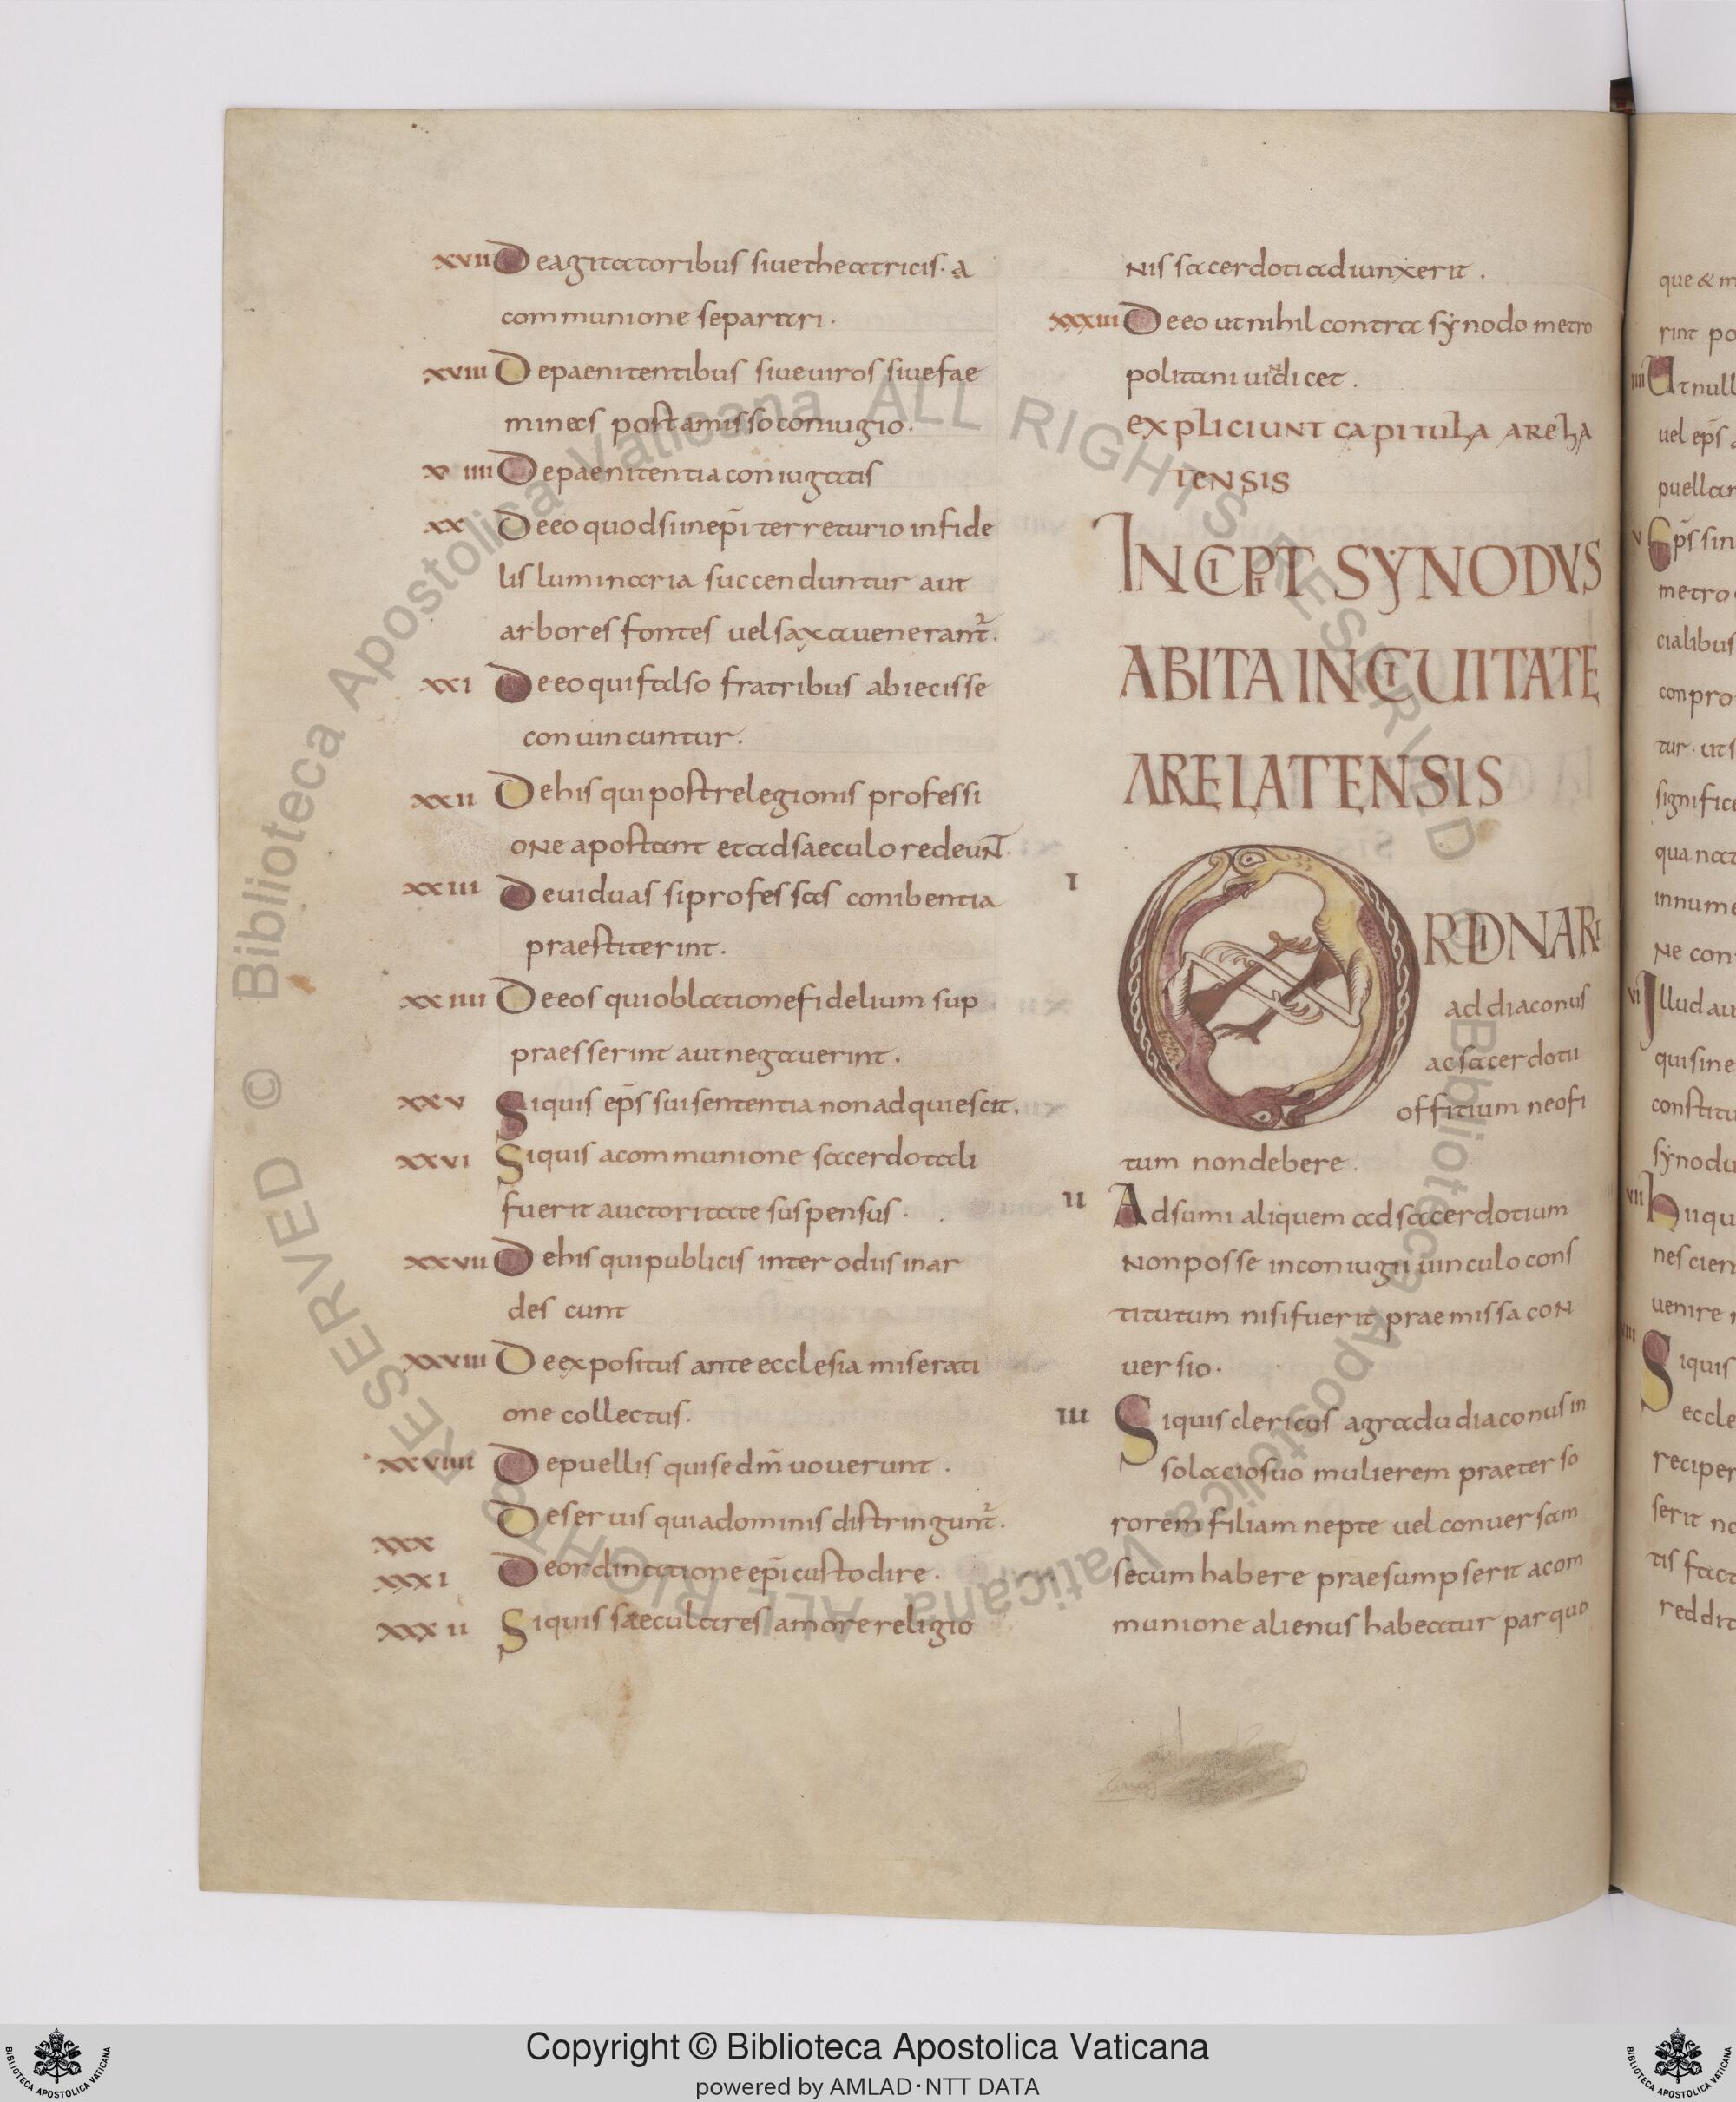 xvii De agitatoribus siue theatricis · a
communione separari ·
xviii De paenitentibus siue uiros siue fae
minas post amisso coniugio ·
xviiii De paenitentia coniugatis
xx De eo quod si in ep̄i terreturio infide
lis luminaria succenduntur aut
arbores fontes uel saxa uenerant᷑ ·
xxi De eo qui falso fratribus abiecisse
conuincuntur ·
xxii De his qui post relegionis professi
one apostant et ad saeculo redeunt ·
xxiii De uiduas si professas conibentia
praestiterint ·
xxiiii De eos qui oblationefidelium sup
praesserint aut negauerint ·
xxv Si quis ep̄s sui sententia non adquiescit ·
xxvi Si quis a communione sacerdotali
fuerit auctoritate suspensus ·
xxvii De his qui publicis inter odus inar
descunt
xxviii De expositus ante ecclesia miserati
one collectus ·
xxviiii De puellis qui se dm̄ uouerunt ·
xxx De seruis qui a dominis distringunt᷑ ·
xxxi De ordinatione ep̄i custodire ·
xxxii Si quis saeculares amore religio
nis sacerdoti adiunxerit ·
xxxiii De eo ut nihil contra synodo metro
politani uindicet ·
expliciunt capitula arela
tensis
INCIPIT SYNODVS
ABITA IN CIUITATE
ARELATENSIS
I ORDINARI
ad diaconus
ac sacerdotii
offitium neofi
tum non debere ·
II Adsumi aliquem ad sacerdotium
non posse in coniugii uinculo cons
titutum nisi fuerit praemissa con
uersio ·
III Si quis clericus a gradu diaconus in
solacio suo mulierem praeter so
rorem filiam nepte uel conuersam
secum habere praesumpserit a com
munione alienus habeatur par quo
que & m
rint po
iiii Ut null
uel ep̄s
puellar
v Ep̄s sin
metro
cialibus
conpro
tur · ut s
signific
qua nat
innume
Ne con
vi Illud au
qui sine
constitu
synodu
vii hii qu
nescien
uenire
viii Si quis
eccle
reciper
serit no
tis fact
reddit
© Biblioteca Apostolica Vaticana ALL RIGHTS RESERVED
Copyright © Biblioteca Apostolica Vaticana
powered by AMLAD·NTT DATA
BIBLIOTECA APOSTOLICA VATICANA
BIBLIOTECA APOSTOLICA VATICANA